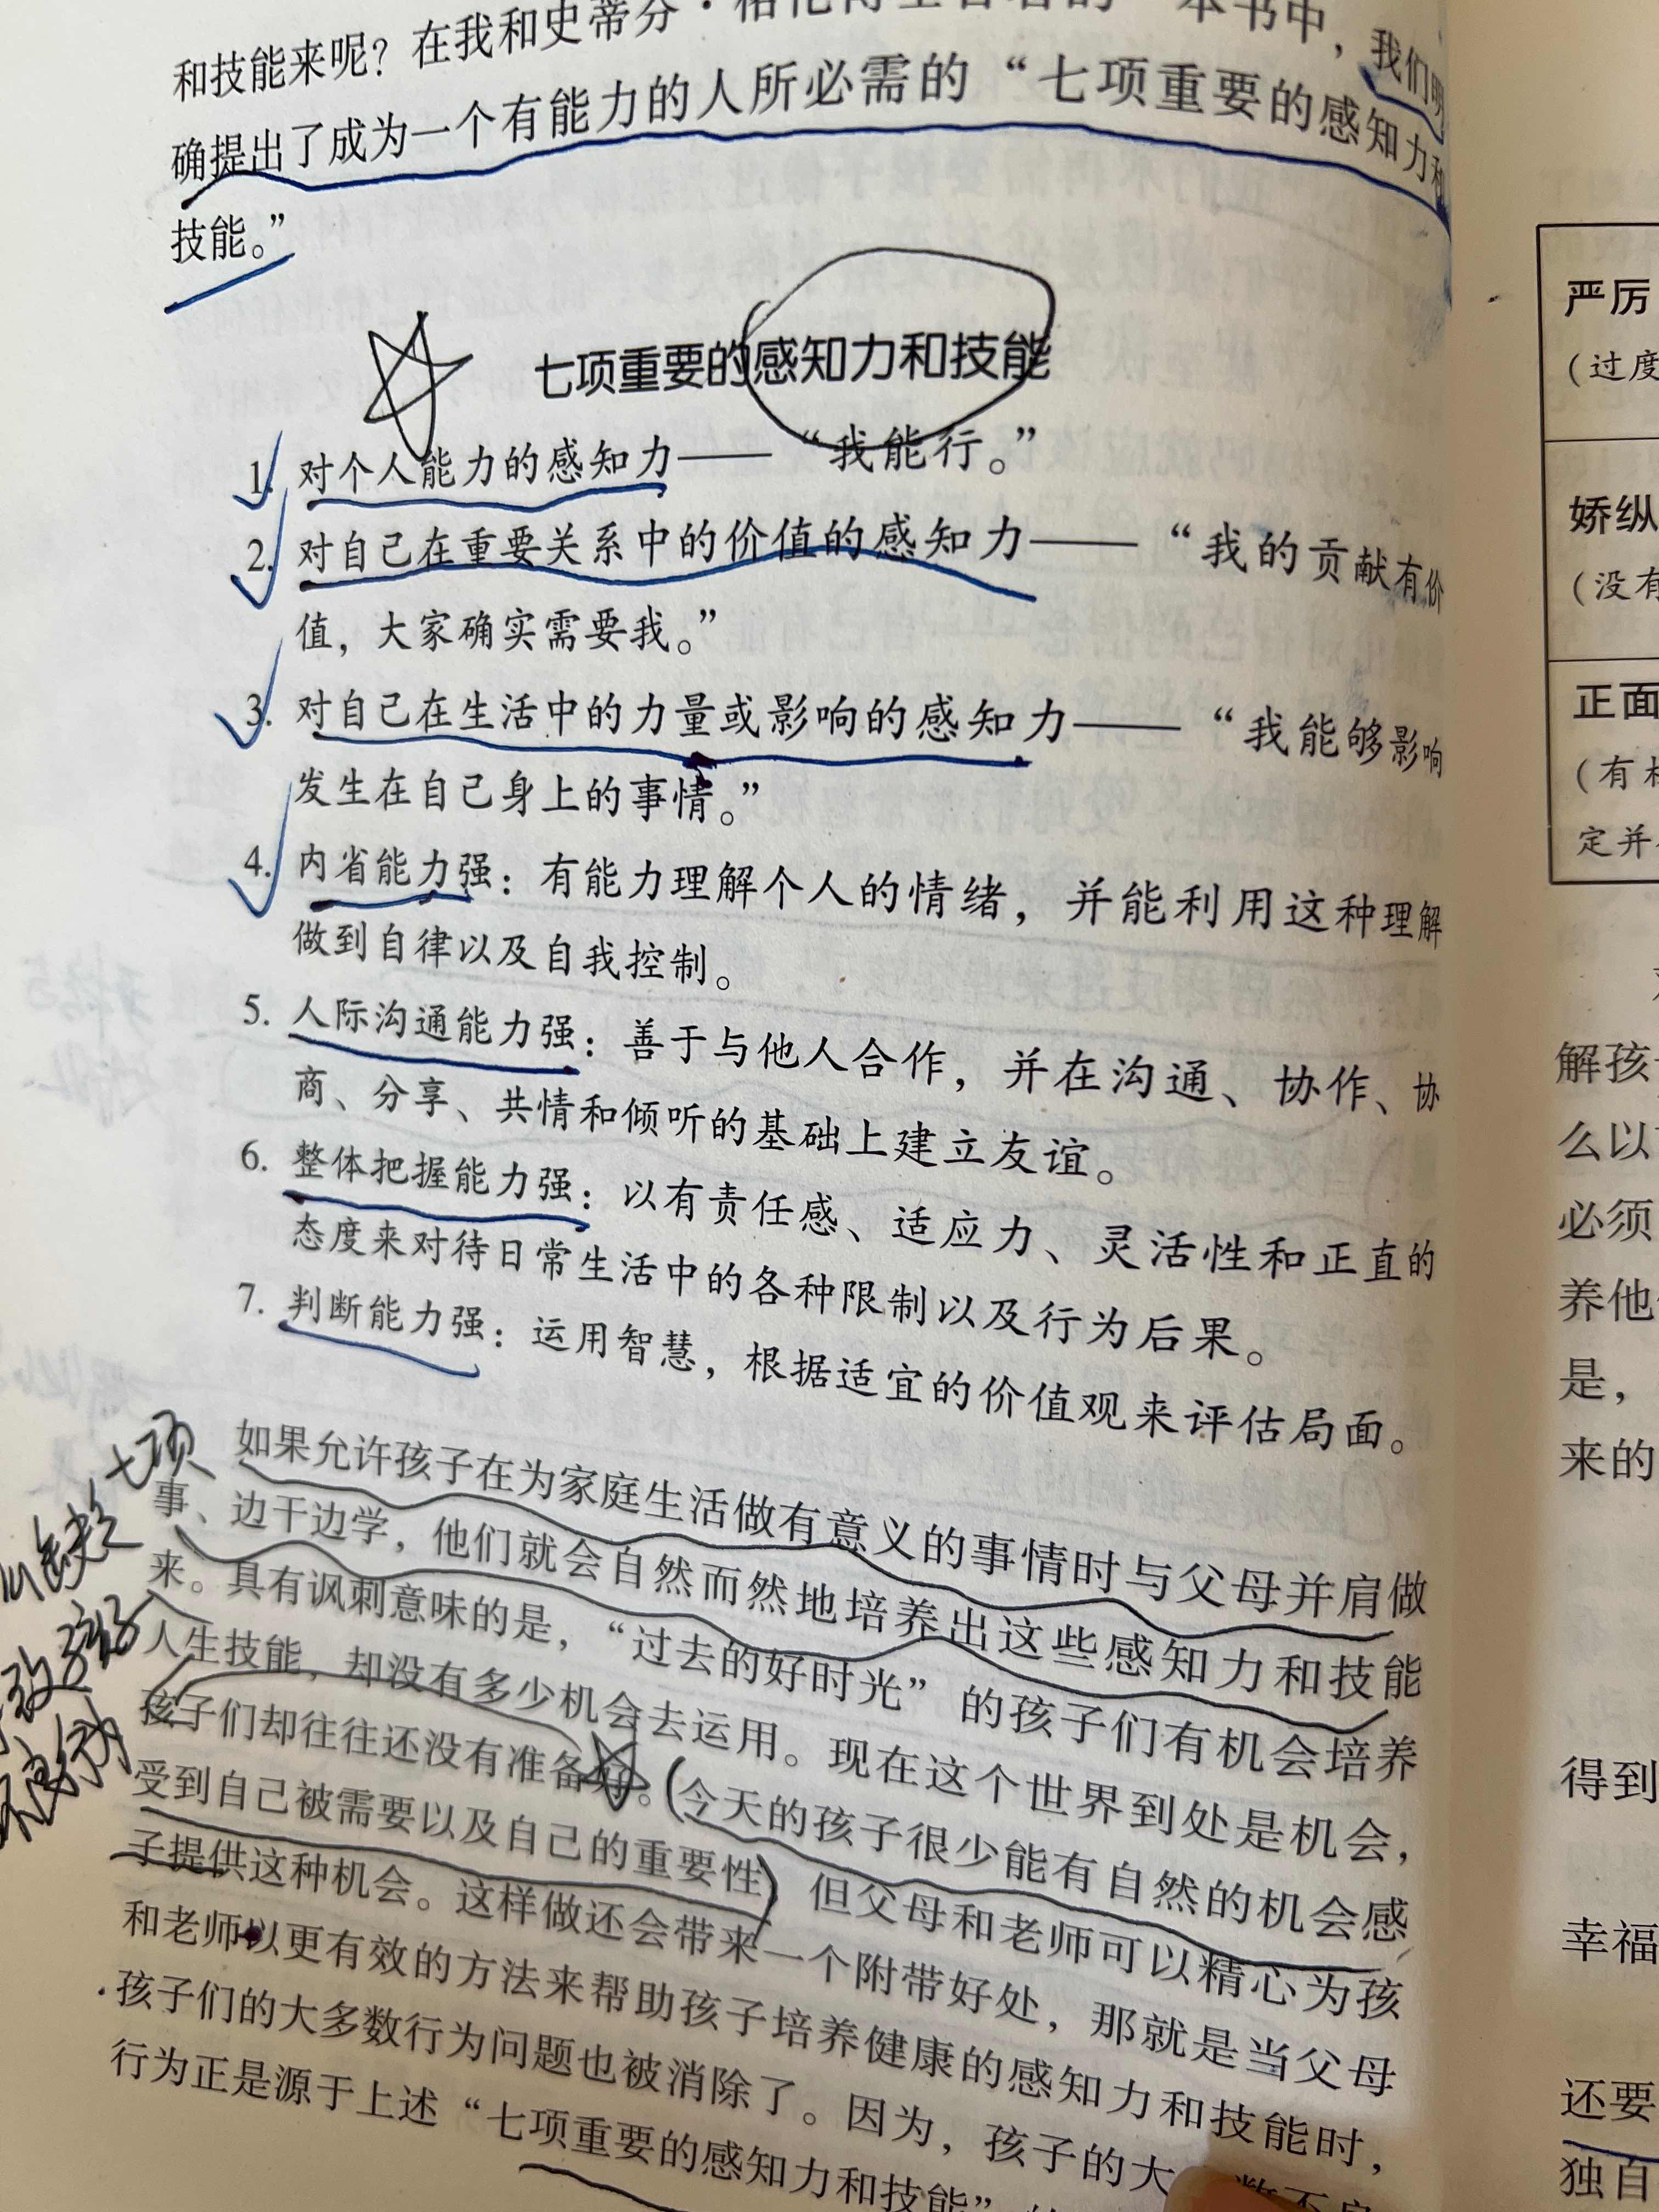 和技能来呢？在我和史蒂分·格伦博士合著的一本书中，我们明
确提出了成为一个有能力的人所必需的“七项重要的感知力和
技能。”
七项重要的感知力和技能
1. 对个人能力的感知力——“我能行。”
2. 对自己在重要关系中的价值的感知力——“我的贡献有价
值，大家确实需要我。”
3. 对自己在生活中的力量或影响的感知力——“我能够影响
发生在自己身上的事情。”
4. 内省能力强：有能力理解个人的情绪，并能利用这种理解
做到自律以及自我控制。
5. 人际沟通能力强：善于与他人合作，并在沟通、协作、协
商、分享、共情和倾听的基础上建立友谊。
6. 整体把握能力强：以有责任感、适应力、灵活性和正直的
态度来对待日常生活中的各种限制以及行为后果。
7. 判断能力强：运用智慧，根据适宜的价值观来评估局面。
如果允许孩子在为家庭生活做有意义的事情时与父母并肩做
事、边干边学，他们就会自然而然地培养出这些感知力和技能
来。具有讽刺意味的是，“过去的好时光”的孩子们有机会培养
人生技能，却没有多少机会去运用。现在这个世界到处是机会，
孩子们却往往还没有准备好。（今天的孩子很少能有自然的机会感
受到自己被需要以及自己的重要性）但父母和老师可以精心为孩
子提供这种机会。这样做还会带来一个附带好处，那就是当父母
和老师以更有效的方法来帮助孩子培养健康的感知力和技能时，
孩子们的大多数行为问题也被消除了。因为，孩子的大
行为正是源于上述“七项重要的感知力和技能”
七项
缺乏
严厉
（过度
娇纵
（没有
正面
（有
定并
解孩
么以
必须
养他
是，
来的
得到
幸福
还要
独自